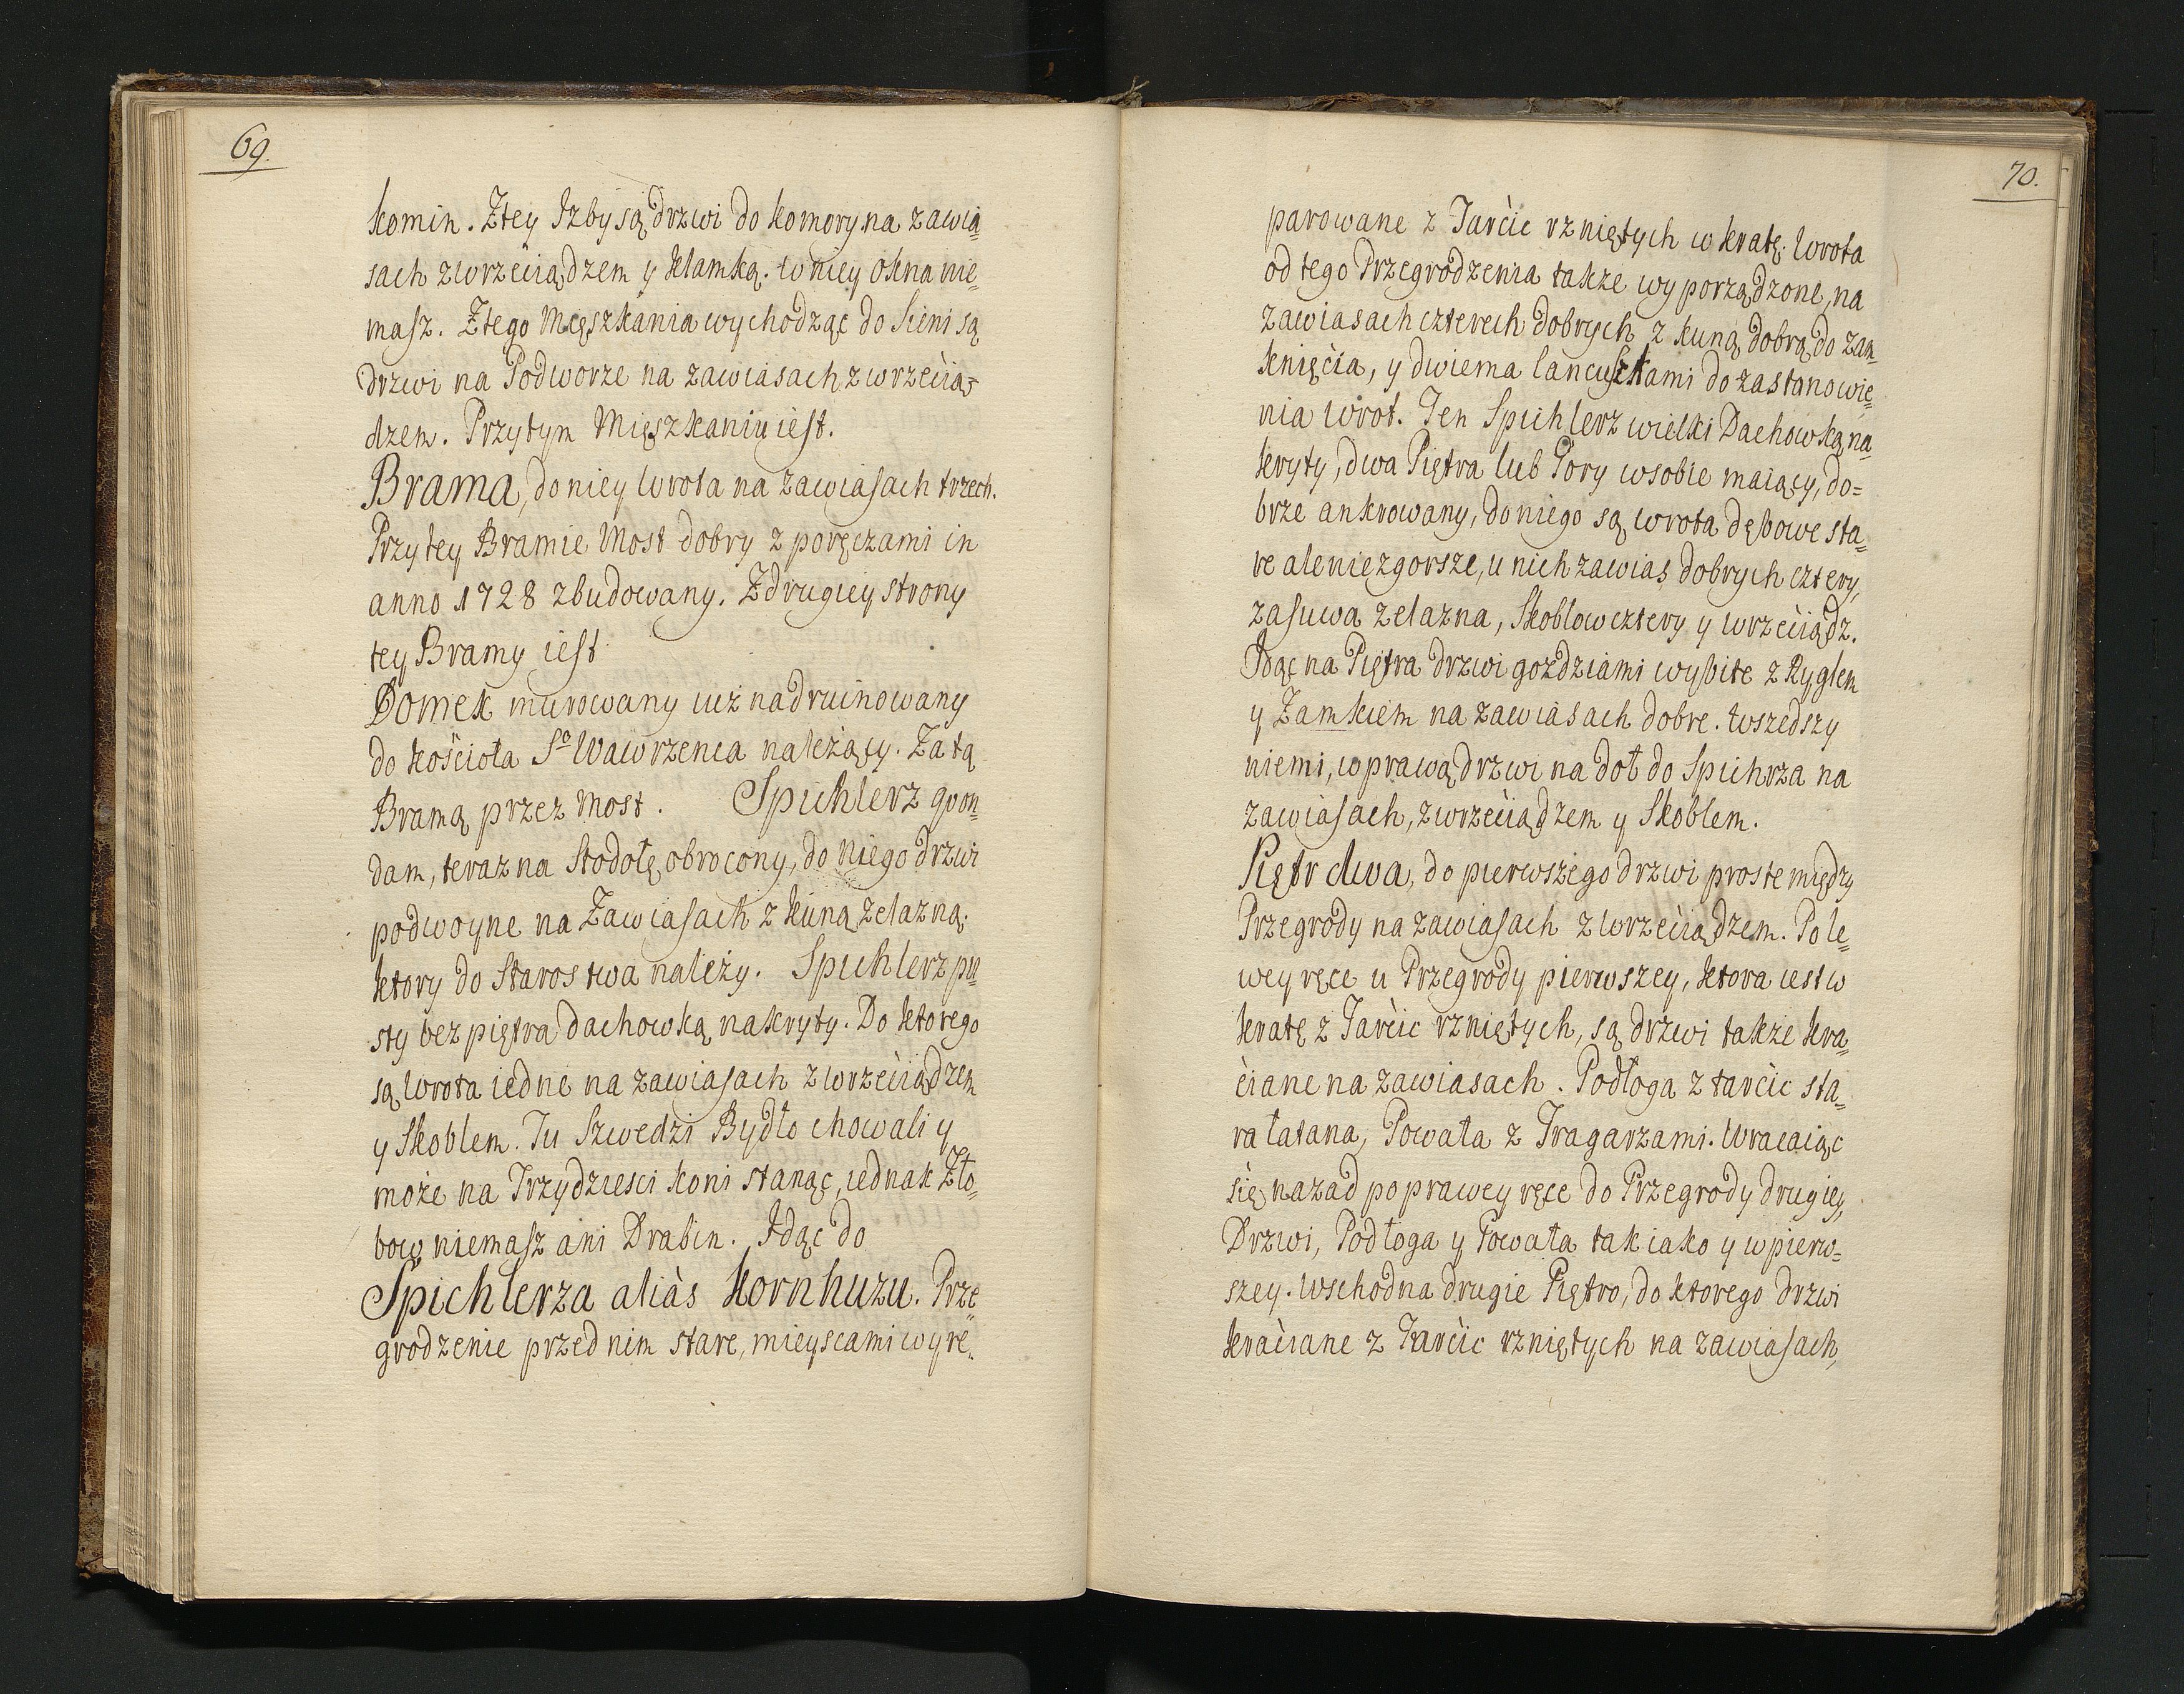 69.
komin. Ztey Izby są drzwi do komory na zawia=
sach z wrzeciądzem y klamką. W niey okna nie=
masz. Ztego Męszkania wychodząc do Sieni są
drzwi na Podworze na zawiasach z wrzecią=
dzem. Przytym Mięszkaniu iest.
Brama, do niey wrota na zawiasach trzech.
Przy tey Bramie Most dobry z poręczami in
anno 1728 zbudowany. Zdrugiey strony
tey Bramy iest
Domek murowany iuż nadruinowany
do kościoła Sº Wawrzenca należący. Za tą
Bramą przez Most. Spichlerz quon=
dam, teraz na Stodołę obrocony, do niego drzwi
podwoyne na Zawiasach z kuną żelazną.
ktory do Starostwa należy. Spichlerz pu=
sty bez piętra dachowką nakryty. Do ktorego
są wrota iedne na zawiasach z wrzeciądzem
y Skoblem. Tu Szwedzi Bydło chowali y
może na Trzydzieści koni stanąc, iednak Żło=
bow niemasz ani Drabin. Idąc do
Spichlerza aliàs Kornhuzu. Prze=
grodzenie przed nim stare, mieyscami wyre=
70.
parowane z Tarcic rzniętych w kratę. Wrota
od tego Przegrodzenia także wyporządzone, na
zawiasach czterech dobrych z kuną dobrą do zam=
knięcia, y dwiema lancuszkami do zastanowie=
nia wrot. Ten Spichlerz wielki Dachowką na=
kryty, dwa Piętra lub Gory w sobie maiący, do=
brze ankrowany, do niego są wrota dębowe sta=
re ale niezgorsze, u nich zawias dobrych cztery,
zasuwa żelazna, Skoblow cztery y wrzeciądz.
Idąc na Piętra drzwi gozdziami wybite z Ryglem
y Zamkiem na zawiasach dobre. Wszedszy
niemi, w prawą drzwi na doł do Spichrza na
zawiasach, z wrzeciądzem y Skoblem.
Piętr dwa, do pierwszego drzwi proste między
Przegrody na zawiasach z wrzeciądzem. Po le=
wey ręce u Przegrody pierwszey, ktora iest w
kratę z Tarcic rzniętych, są drzwi także kra=
ciane na zawiasach. Podłoga z tarcic sta=
ra łatana, Powała z Tragarzami. Wracaiąc
się nazad po prawey ręce do Przegrody drugiey,
Drzwi, Podłoga y Powała tak iako y w pierw=
szey. Wschod na drugie Piętro, do ktorego drzwi
kraciane z Tarcic rzniętych na zawiasach,